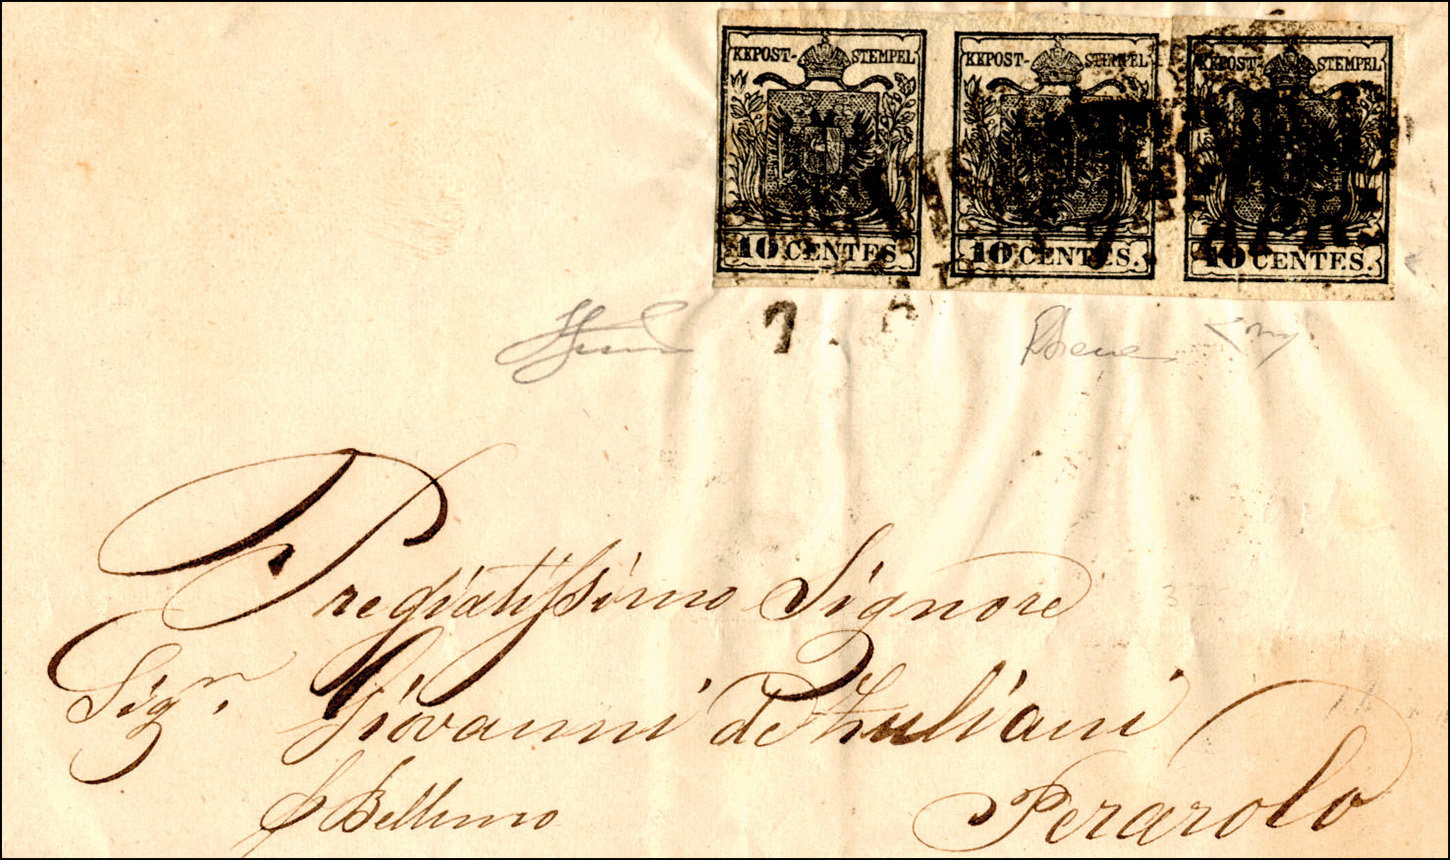 KKPOST-STEMPEL KKPOST-STEMPEL KKPOST-STEMPEL
10 CENTES. 10 CENTES. 10 CENTES.
7.
Pregiatissimo Signore
Sigr. Giovanni de Zuliani
p Belluno
Perarolo